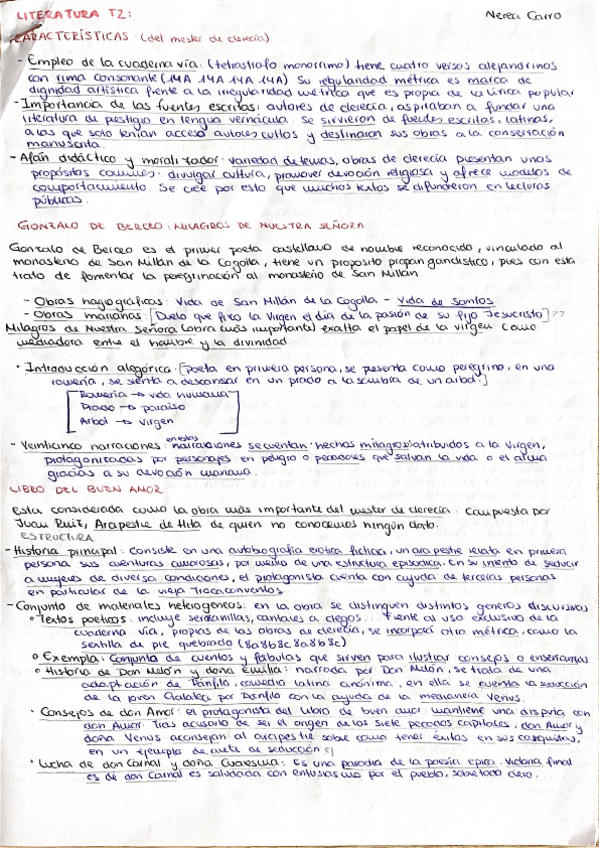 LITERATURA T2:
Nerea Carro
CARACTERÍSTICAS: (del mester de clerecía)
- Empleo de la cuaderna vía: (tetrástrofo monorrimo) tiene cuatro versos alejandrinos
con rima consonante (14A 14A 14A 14A) Su regularidad métrica es marca de
dignidad artística frente a la irregularidad métrica que es propia de la lírica popular
- Importancia de las fuentes escritas: autores de clerecía, aspiraban a fundar una
literatura de prestigio en lengua vernácula. Se sirvieron de fuentes escritas, latinas,
a las que solo tenían acceso autores cultos y destinaron sus obras a la conservación
manuscrita.
- Afán didáctico y moralizador: variedad de temas, obras de clerecía presentan unos
propósitos comunes: divulgar cultura, promover devoción religiosa y ofrece modelos de
comportamiento. Se cree por esto que muchos textos se difundieron en lecturas
públicas.
GONZALO DE BERCEO: MILAGROS DE NUESTRA SEÑORA
Gonzalo de Berceo es el primer poeta castellano de nombre reconocido, vinculado al
monasterio de San Millán de la Cogolla, tiene un propósito propagandístico, pues con esta
trató de fomentar la peregrinación al monasterio de San Millán.
- Obras hagiográficas: Vida de San Millán de la Cogolla - vida de santos
- Obras marianas: [Duelo que fizo la Virgen el día de la pasión de su fijo Jesucristo] ??
Milagros de Nuestra Señora (obra más importante) exalta el papel de la virgen como
mediadora entre el hombre y la divinidad.
• Introducción alegórica: [poeta en primera persona, se presenta como peregrino, en una
romería, se sienta a descansar en un prado a la sombra de un árbol.]
Romería → vida humana
Prado → paraíso
Árbol → Virgen
- Veinticinco narraciones: en estas narraciones se cuentan hechos milagrosos atribuidos a la Virgen,
protagonizados por personajes en peligro o pecadores que salvan la vida o el alma
gracias a su devoción mariana.
LIBRO DEL BUEN AMOR
Esta considerada como la obra más importante del mester de clerecía. Compuesta por
Juan Ruiz, Arcipestre de Hita de quien no conocemos ningún dato.
ESTRUCTURA
- Historia principal: Consiste en una autobiografía erótica ficticia, un arcipestre relata en primera
persona sus aventuras amorosas, por medio de una estructura episódica. En su intento de seducir
a mujeres de diversa condiciones, el protagonista cuenta con ayuda de terceras personas
en particular de la vieja Trotaconventos
- Conjunto de materiales heterogéneos: en la obra se distinguen distintos generos discursivos
• Textos poéticos: incluye serranillas, cantares a ciegos... frente al uso exclusivo de la
cuaderna vía, propias de las obras de clerecía, se incorporó otra métrica, como la
sextilla de pie quebrado (8a8b8c8a8b8c)
• Exempla: conjunto de cuentos y fábulas que sirven para ilustrar consejos o enseñanzas
• Historia de Don Melón y doña Endrina: narrada por Don Melón, se trata de una
adaptación de Pánfilo, comedia latina anónima, en ella se cuenta la seducción
de la joven Galatea por Pánfilo con la ayuda de la medianeria Venus.
• Consejos de don Amor: el protagonista del libro de buen amor mantiene una disputa con
don Amor. Tras acusarlo de ser el origen de los siete pecados capitales, don Amor y
doña Venus aconsejan al arcipestre sobre como tener éxitos en sus conquistas,
en un ejemplo de arte de seducción
• Lucha de don Carnal y doña Cuaresma: Es una parodia de la poesía épica. Victoria final
es de don Carnal es saludada con entusiasmo por el pueblo, sobretodo clero.